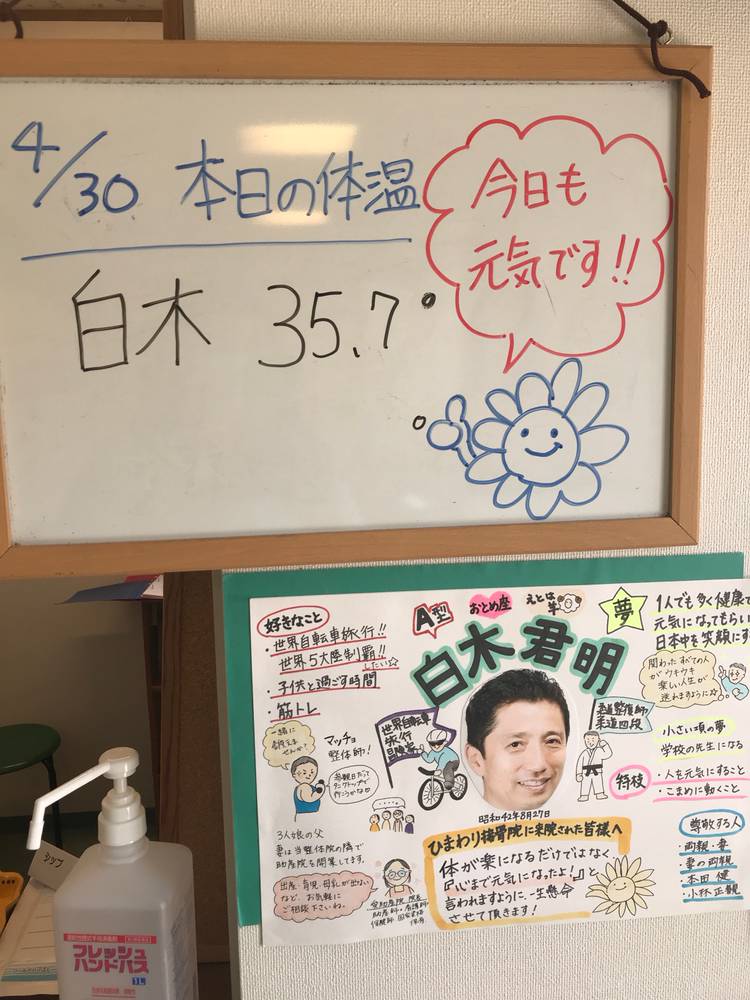 4/30 本日の体温
白木 35.7°
今日も
元気です!!
好きなこと
・世界自転車旅行!!
世界5大陸制覇!!
したい☆
・子供と過ごす時間
・筋トレ
A型
おとめ座
えとは
羊
白木君明
夢
1人でも多く健康で
元気になってもらい
日本中を笑顔にす
関わったすべての人
がウキウキ
楽しい人生が
送れますように☆
一緒に
鍛えま
せんか?
マッチョ
整体師!
世界自転車
旅行
冒険家
柔道整復師
柔道四段
小さい頃の夢
学校の先生になる
特技
・人を元気にすること
・こまめに動くこと
昭和42年8月27日
3人娘の父
妻は当整体院の隣で
助産院を開業してます。
出産・育児・母乳が出ない
など、お気軽に
ご相談下さいね。
助産院 院長
助産師・看護師
ひまわり接骨院に来院された皆様へ
体が楽になるだけではなく
『心まで元気になったよ!』と
言われますように、一生懸命
させて頂きます!
尊敬する人
・両親・妻
・妻の両親
・本田 健
・小林正観
シップ
フレッシュ
ハンドバス
1L